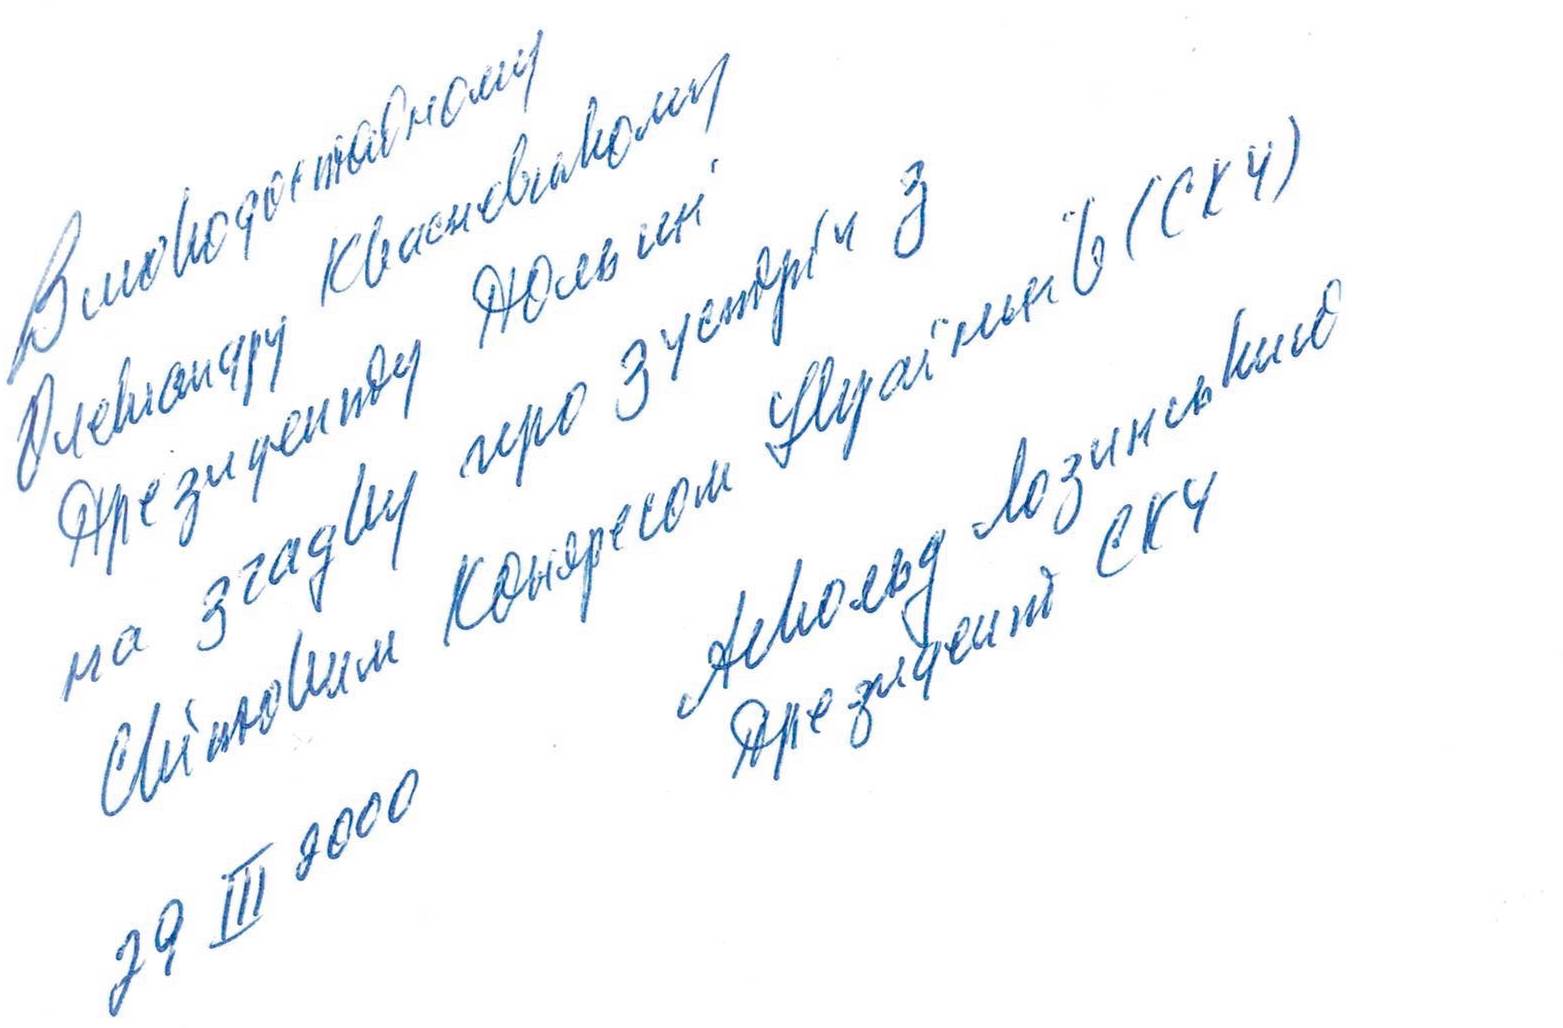 Високодостойному
Олександру Квасневському
Президенту Польщі
на згадку про зустріч з
Світовим Конгресом Українців (СКУ)
Аскольд Лозинський
Президент СКУ
29 III 2000